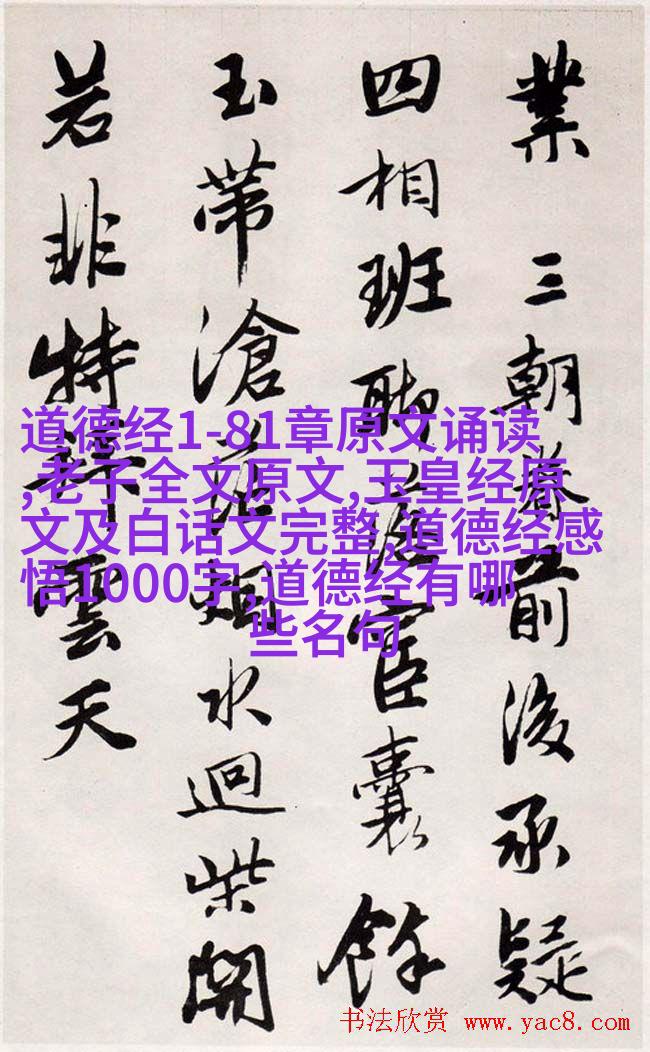 業 三朝眷前後承疑
四相班聯宦囊餘
玉帶滄茫烟水迴柴開
若非特釋雲天
道德经1-81章原文诵读
,老子全文原文,玉皇经原
文及白话文完整,道德经感
悟1000字,道德经有哪
些名句
书法欣赏 www.yac8.com